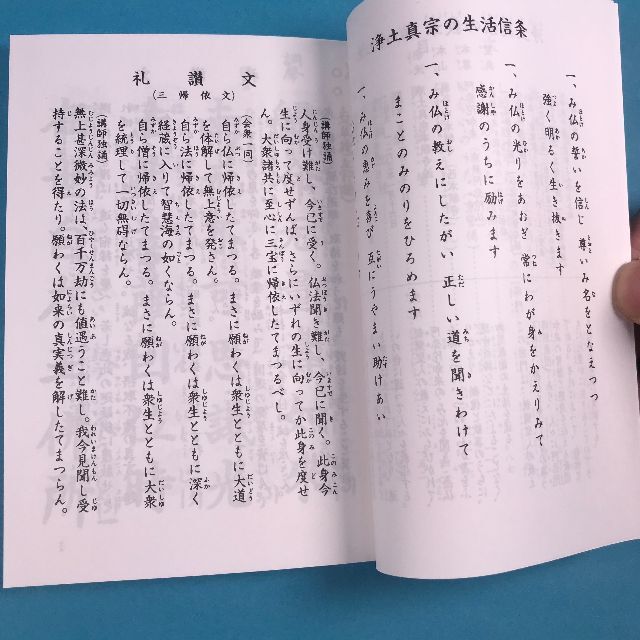 浄土真宗の生活信条
一、み仏の誓いを信じ 尊いみ名をとなえつつ
強く明るく生き抜きます
一、み仏の光りをあおぎ 常にわが身をかえりみて
感謝のうちに励みます
一、み仏の教えにしたがい 正しい道を聞きわけて
まことのみのりをひろめます
一、み仏の恵みを喜び 互にうやまい助けあい
礼讃文
(三帰依文)
(講師独誦)
人身受け難し、今已に受く。仏法聞き難し、今已に聞く。此身今
生に向って度せずんば、さらにいずれの生に向ってか此身を度せ
ん。大衆諸共に至心に三宝に帰依したてまつるべし。
(会衆一同)
自ら仏に帰依したてまつる。まさに願わくは衆生とともに大道
を体解して無上意を発さん。
自ら法に帰依したてまつる。まさに願わくは衆生とともに深く
経蔵に入りて智慧海の如くならん。
自ら僧に帰依したてまつる。まさに願わくは衆生とともに大衆
を統理して一切無碍ならん。
(講師独誦)
無上甚深微妙の法は、百千万劫にも値遇うこと難し。我今見聞し受
持することを得たり。願わくは如来の真実義を解したてまつらん。